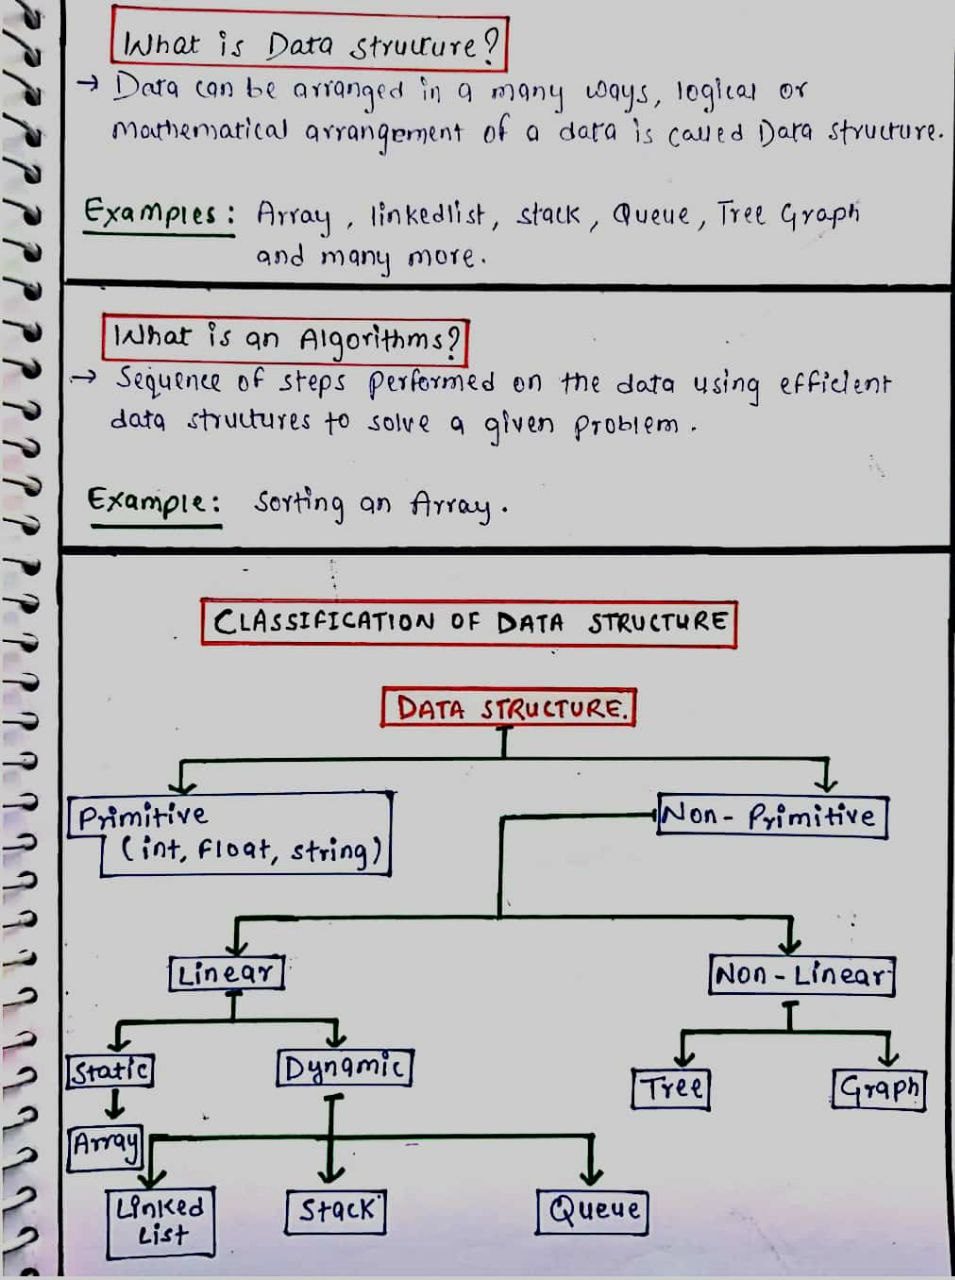 What is Data Structure?
→ Data can be arranged in a many ways, logical or
mathematical arrangement of a data is called Data structure.
Examples: Array, linkedlist, stack, Queue, Tree Graph
and many more.
What is an Algorithms?
→ Sequence of steps performed on the data using efficient
data structures to solve a given problem.
Example: Sorting an Array.
CLASSIFICATION OF DATA STRUCTURE
DATA STRUCTURE.
Primitive
(int, Float, string)
Non-Primitive
Linear
Non-Linear
Static
Dynamic
Tree
Graph
Array
Linked
List
Stack
Queue